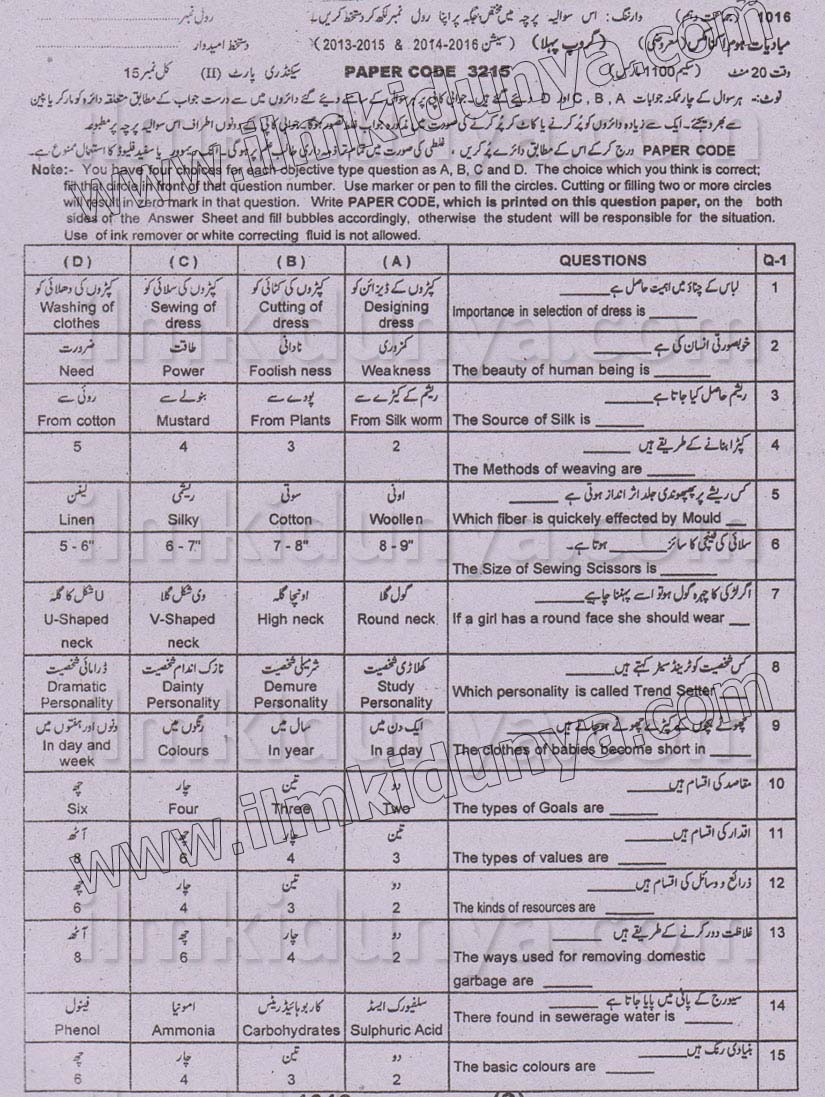 1016 (جماعت دہم) وارننگ: اس سوالیہ پرچہ میں مختص جگہ پر اپنا رول نمبر لکھ کر دستخط کریں۔ رول نمبر
مبادیات ہوم اکنامکس (معروضی) (گروپ پہلا) (سیشن 2014-2016 & 2013-2015) دستخط امیدوار
وقت 20 منٹ (سکیم 1100 مارکس) PAPER CODE 3215 سیکنڈری پارٹ (II) کل نمبر 15
نوٹ:- ہر سوال کے چار ممکنہ جوابات A ، B ، C اور D دیئے گئے ہیں۔ جوابی کاپی پر ہر سوال کے سامنے دیئے گئے دائروں میں سے درست جواب کے مطابق متعلقہ دائرہ کو مارکر یا پین
سے بھر دیجئے۔ ایک سے زیادہ دائروں کو پُر کرنے یا کاٹ کر پُر کرنے کی صورت میں مذکورہ جواب غلط تصور ہوگا۔ جوابی کاپی کے دونوں اطراف اس سوالیہ پرچہ پر مطبوعہ
PAPER CODE درج کرکے اس کے مطابق دائرے پُر کریں، غلطی کی صورت میں تمام تر ذمہ داری طالب علم پر ہوگی۔ انک ریموور یا سفید فلیوڈ کا استعمال ممنوع ہے۔
Note:- You have four choices for each objective type question as A, B, C and D. The choice which you think is correct;
fill that circle in front of that question number. Use marker or pen to fill the circles. Cutting or filling two or more circles
will result in zero mark in that question. Write PAPER CODE, which is printed on this question paper, on the both
sides of the Answer Sheet and fill bubbles accordingly, otherwise the student will be responsible for the situation.
Use of ink remover or white correcting fluid is not allowed.
(D) (C) (B) (A) QUESTIONS Q-1
کپڑوں کی دھلائی کو کپڑوں کی سلائی کو کپڑوں کی کٹائی کو کپڑوں کے ڈیزائن کو لباس کے چناؤ میں اہمیت حاصل ہے ______ 1
Washing of clothes Sewing of dress Cutting of dress Designing dress Importance in selection of dress is ______
ضرورت طاقت نادانی کمزوری خوبصورتی انسان کی ہے ______ 2
Need Power Foolish ness Weakness The beauty of human being is ______
روئی سے بنولے سے پودے سے ریشم کے کیڑے سے ریشم حاصل کیا جاتا ہے ______ 3
From cotton Mustard From Plants From Silk worm The Source of Silk is ______
5 4 3 2 کپڑا بنانے کے طریقے ہیں ______ 4
The Methods of weaving are ______
لینن ریشمی سوتی اونی کس ریشے پر پھپھوندی جلد اثر انداز ہوتی ہے ______ 5
Linen Silky Cotton Woollen Which fiber is quickely effected by Mould __
5 - 6" 6 - 7" 7 - 8" 8 - 9" سلائی کی قینچی کا سائز ______ ہوتا ہے۔ 6
The Size of Sewing Scissors is ______
U شکل کا گلہ وی شکل گلا اونچا گلہ گول گلا اگر لڑکی کا چہرہ گول ہو تو اسے پہننا چاہیے ______ 7
U-Shaped neck V-Shaped neck High neck Round neck If a girl has a round face she should wear __
ڈرامائی شخصیت نازک اندام شخصیت شرمیلی شخصیت کھلاڑی شخصیت کس شخصیت کو ٹرینڈ سیٹر کہتے ہیں ______ 8
Dramatic Personality Dainty Personality Demure Personality Study Personality Which personality is called Trend Setter
دنوں اور ہفتوں میں رنگوں میں سال میں ایک دن میں چھوٹے بچوں کے کپڑے چھوٹے ہو جاتے ہیں ______ 9
In day and week Colours In year In a day The clothes of babies become short in ____
چھ چار تین دو مقاصد کی اقسام ہیں ______ 10
Six Four Three Two The types of Goals are ______
آٹھ چھ چار تین اقدار کی اقسام ہیں ______ 11
8 6 4 3 The types of values are ______
چھ چار تین دو ذرائع و وسائل کی اقسام ہیں ______ 12
6 4 3 2 The kinds of resources are ______
آٹھ چھ چار دو غلاظت دور کرنے کے طریقے ہیں ______ 13
8 6 4 2 The ways used for removing domestic
garbage are ______
فینول امونیا کاربوہائیڈریٹس سلفیورک ایسڈ سیوریج کے پانی میں پایا جاتا ہے ______ 14
Phenol Ammonia Carbohydrates Sulphuric Acid There found in sewerage water is ____
چھ چار تین دو بنیادی رنگ ہیں ______ 15
6 4 3 2 The basic colours are ______
www.ilmkidunya.com
www.ilmkidunya.com
ilmkidunya.com
ilmkidunya.com
ilmkidunya.com
ilmkidunya.com
ilmkidunya.com